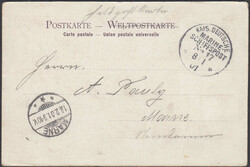 Feldpostkarte
POSTKARTE — WELTPOSTKARTE
Carte postale — Union postale universelle
KAIS. DEUTSCHE
MARINE-
SCHIFFSPOST
8 1
01
Herrn
A. Pauly
Marne
MARNE
14.2.01